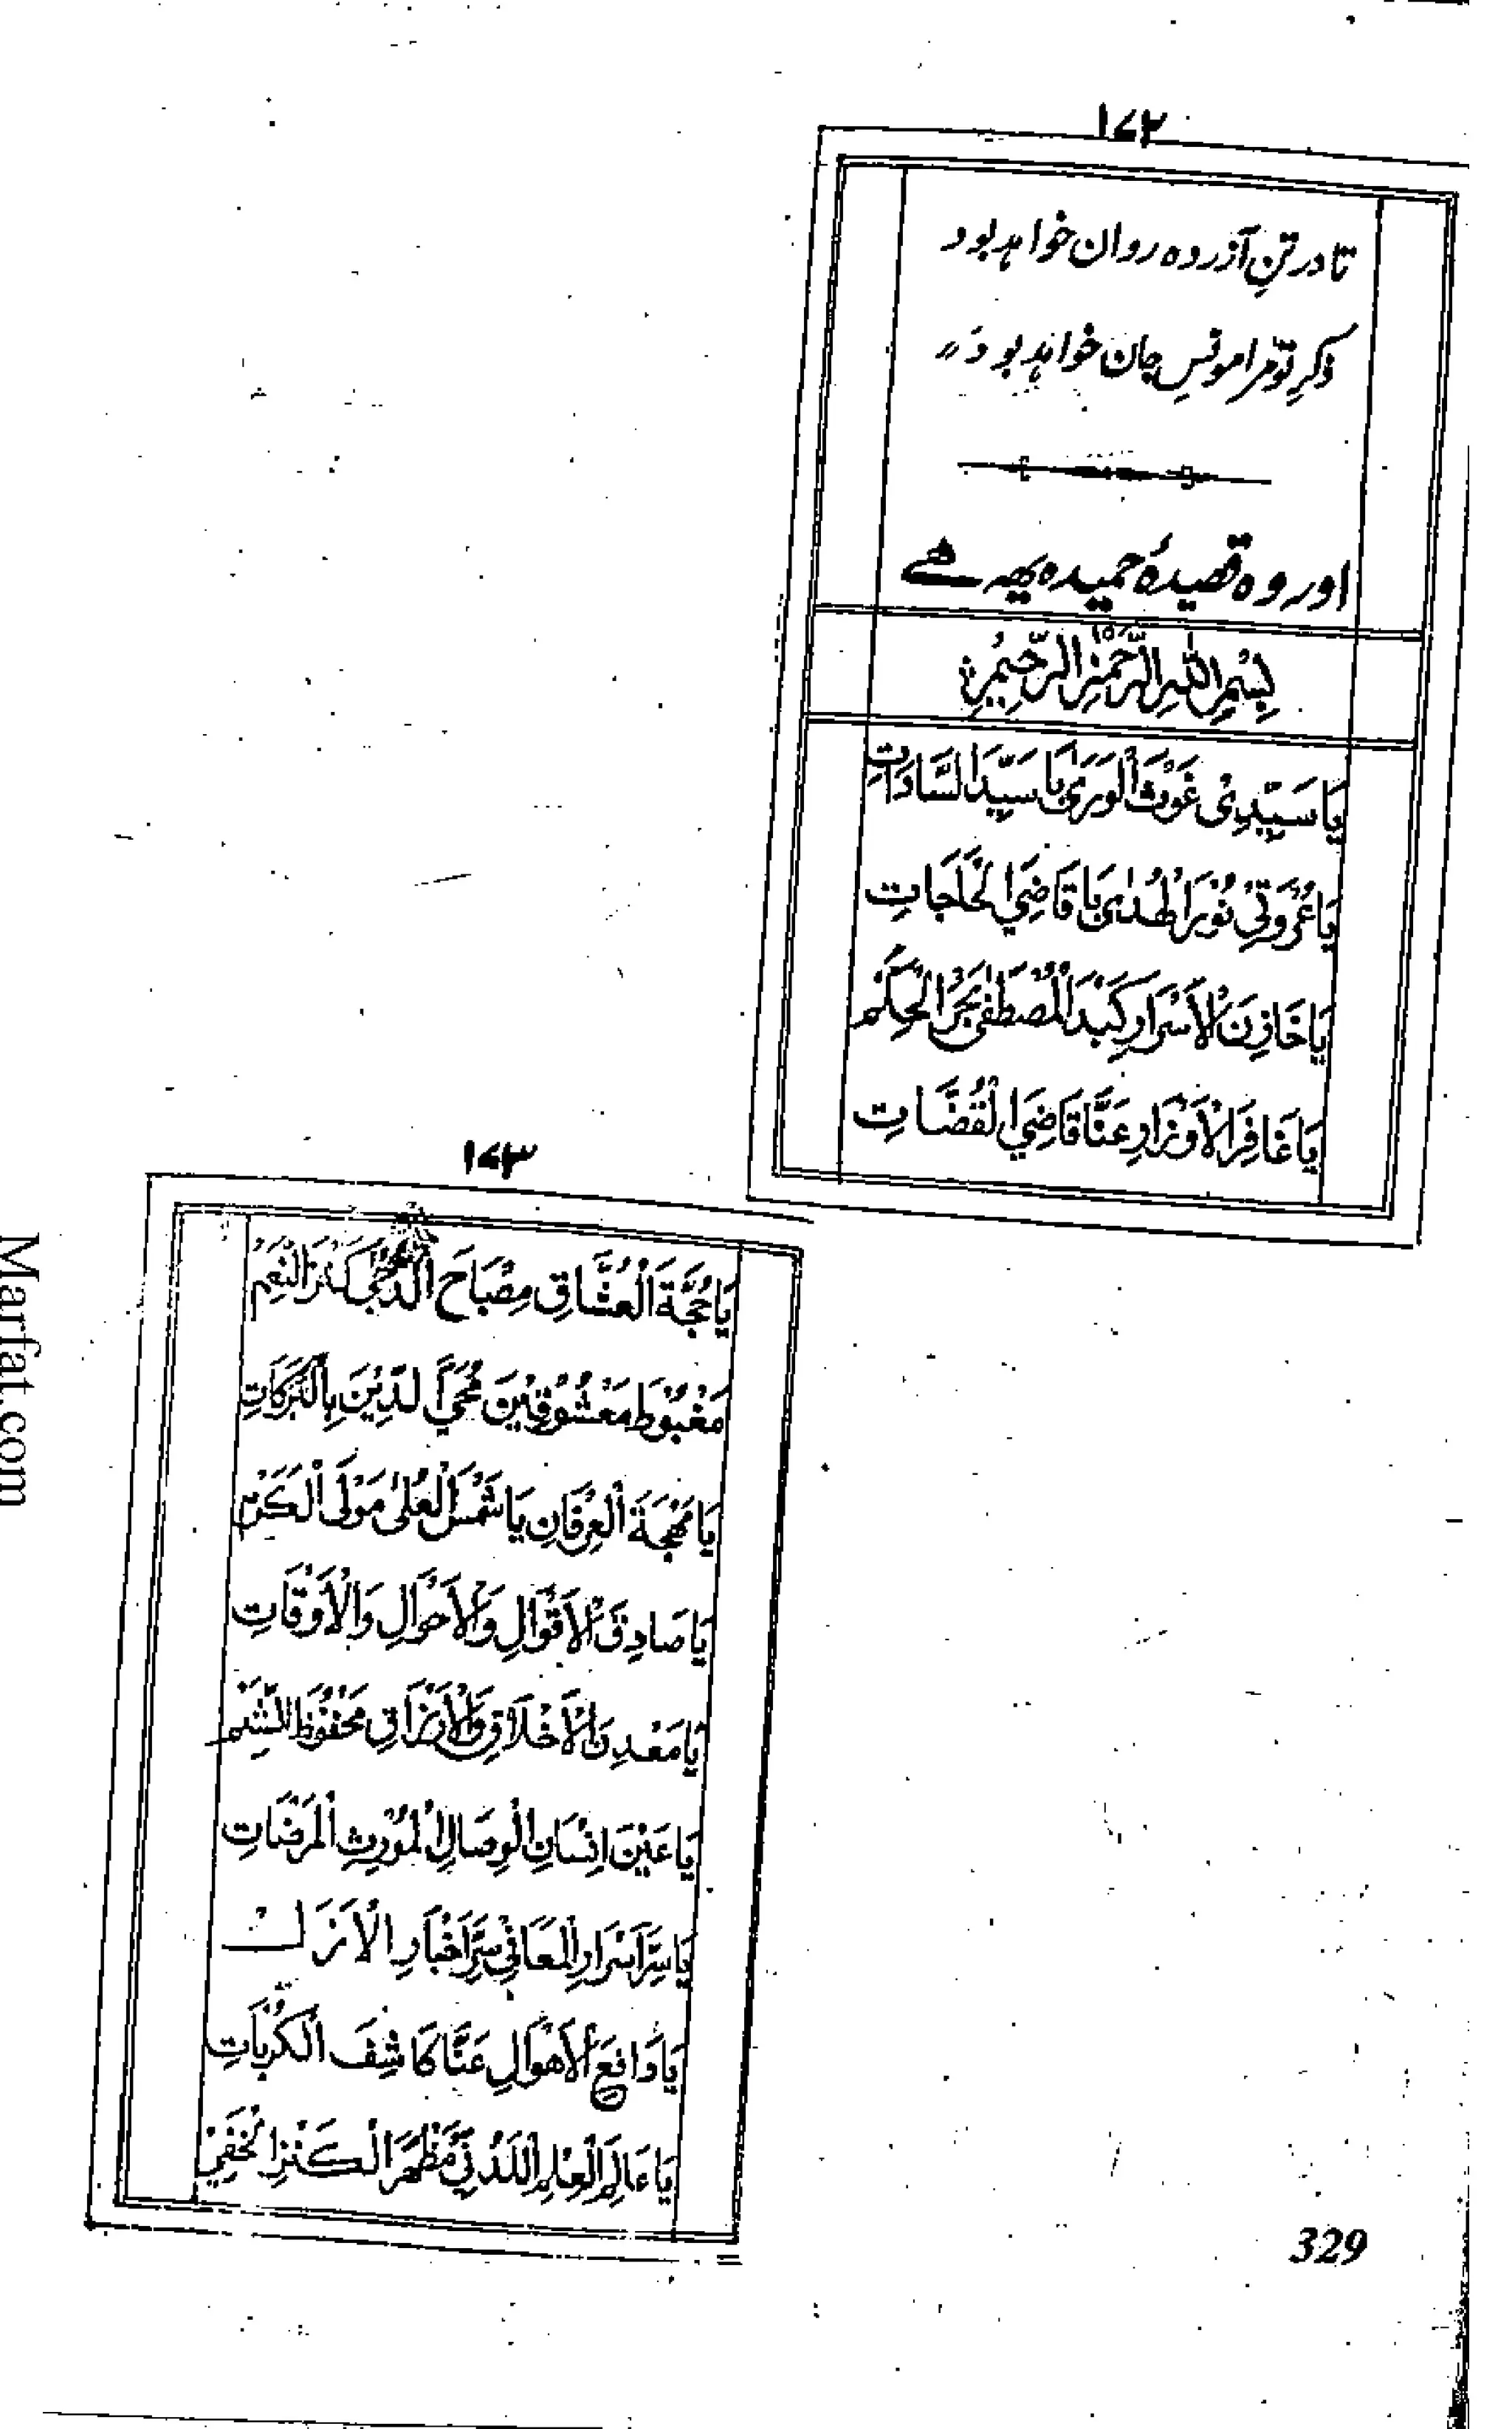 ۱۷۲
تا در تنِ آزردہ روان خواہد بود
ذکرِ تو مرا مونسِ جان خواہد بود
اور وہ قصیدۂ حمیدہ یہ ہے
بِسْمِ اللهِ الرَّحْمٰنِ الرَّحِيْمِ
يَا سَيِّدِيْ غَوْثَ الْوَرٰى يَا سَيِّدَ السَّادَاتِ
يَا عُرْوَتِيْ نُوْرَ الْهُدٰى يَا قَاضِيَ الْحَاجَاتِ
يَا خَازِنَ الْأَسْرَارِ كَبْدَ الْمُصْطَفٰى بَحْرَ الْحِكَمْ
يَا غَافِرَ الْأَوْزَارِ عَنَّا قَاضِيَ الْقُضَّاتِ
۱۷۳
يَا حُجَّةَ الْعُشَّاقِ مِصْبَاحَ الدُّجٰى كَنْزَ النِّعَمْ
مَغْبُوْطَ مَعْشُوْقِيْنَ مُحْيَ الدِّيْنَ بِالْبَرَكَاتِ
يَا مُهْجَةَ الْعِرْفَانِ يَا شَمْسَ الْعُلٰى مَوْلَى الْكَرَمْ
يَا صَادِقَ الْأَقْوَالِ وَالْأَحْوَالِ وَالْأَوْقَاتِ
يَا مَعْدِنَ الْأَخْلَاقِ وَالْأَرْزَاقِ مَحْفُوْظَ الشِّيَمْ
يَا عَيْنَ اِنْسَانِ الْوِصَالِ الْمُوْرِثِ الْمَرْضَاتِ
يَا سِرَّ اَسْرَارِ الْمَعَانِيْ سِرَّ اَخْبَارِ الْأَزَلْ
يَا دَافِعَ الْأَهْوَالِ عَنَّا كَاشِفَ الْكُرُبَاتِ
يَا عَالِمَ الْعِلْمِ اللَّدُنِّيْ مَظْهَرَ الْكَنْزِ الْخَفِيْ
329
Marfat.com